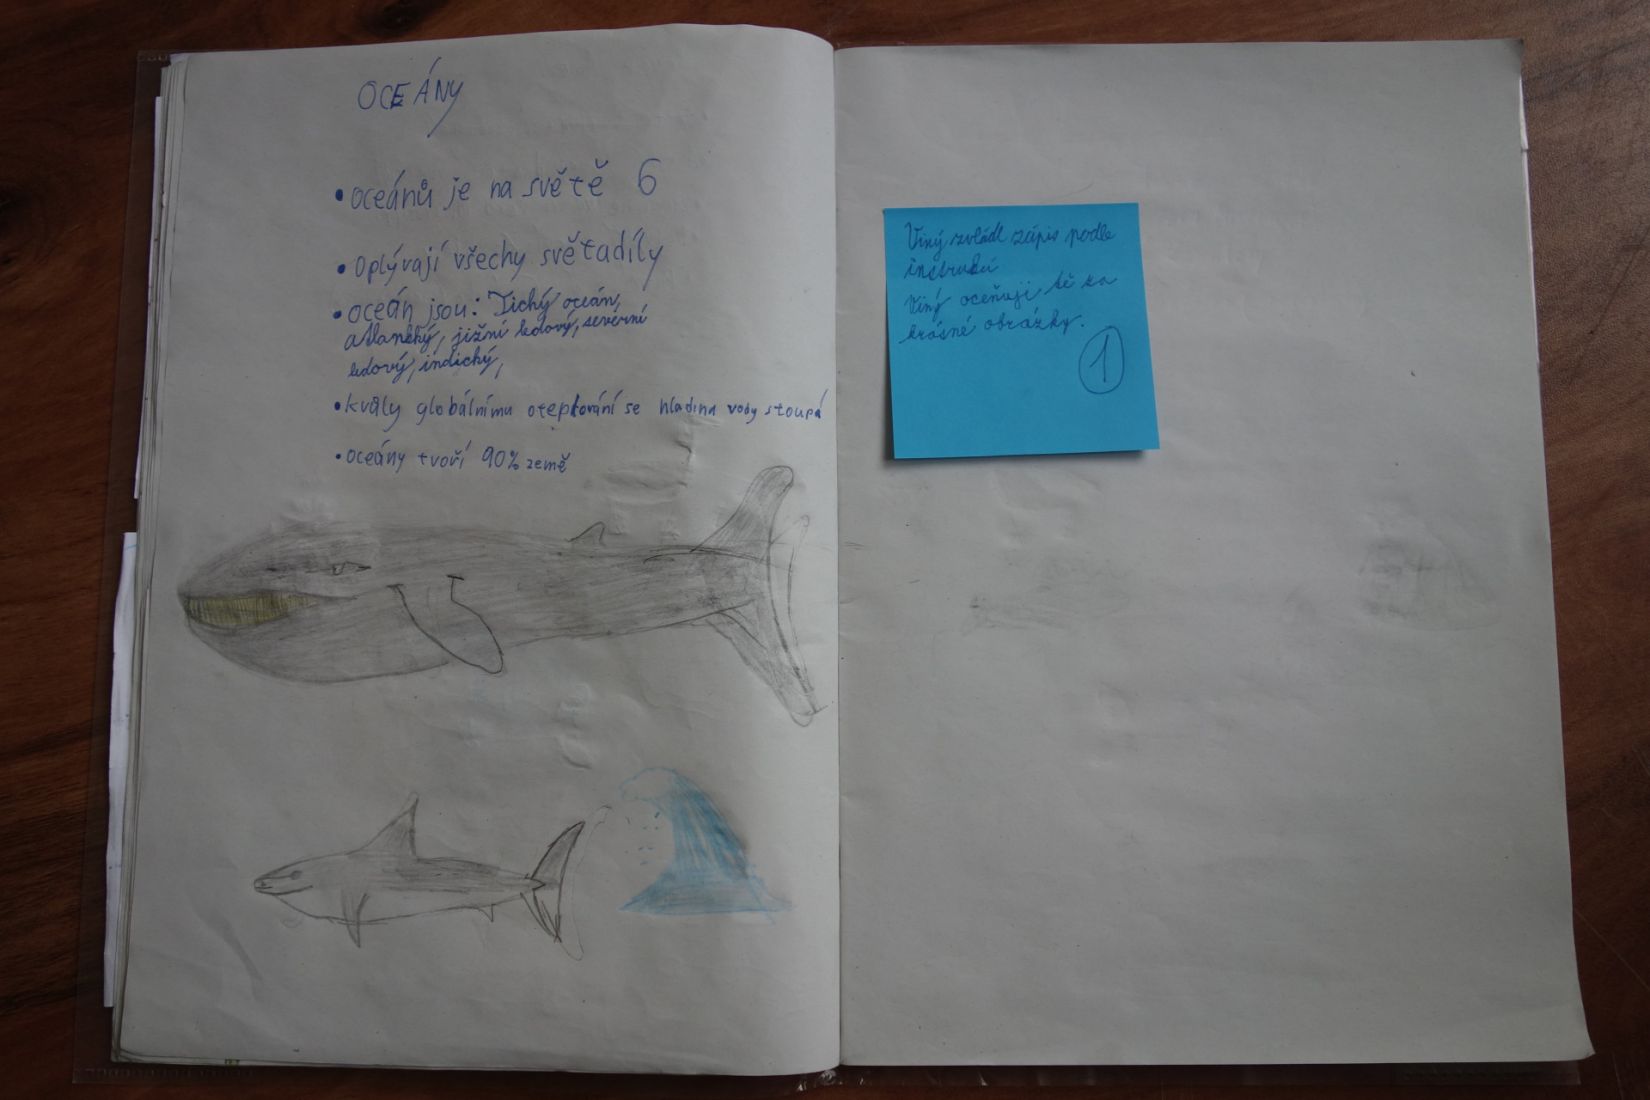 OCEÁNY
• oceánů je na světě 6
• Oplývají všechy světadíly
• oceán jsou: Tichý oceán,
atlantký, jižní ledový, severní
ledový, indický,
• kvůly globálnímu oteplování se hladina vody stoupá
• oceány tvoří 90% země
Viný zvládl zápis podle
instrukcí
Viný oceňuji tě za
krásné obrázky.
1